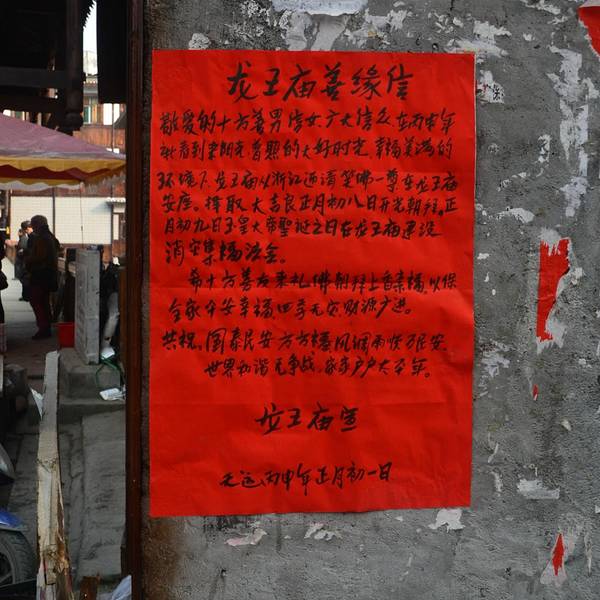 龙王庙善缘信
敬爱的十方善男信女、广大信众在丙申年
看到来阳光普照的大好时光,幸福美满的
环境下,龙王庙从浙江迎请笑佛一尊在龙王庙
安座。择取大吉良正月初八日开光朝往。正
月初九日玉皇大帝聖诞之日在龙王庙里设
消灾集福法会。
希十方善友来礼佛朝拜上香集福,以保
全家平安幸福四季无灾,财源广进。
共祝:国泰民安方方福,风调雨顺万民安
世界和谐无争战,家家户户太平年。
龙王庙宣
天运丙申年正月初一日